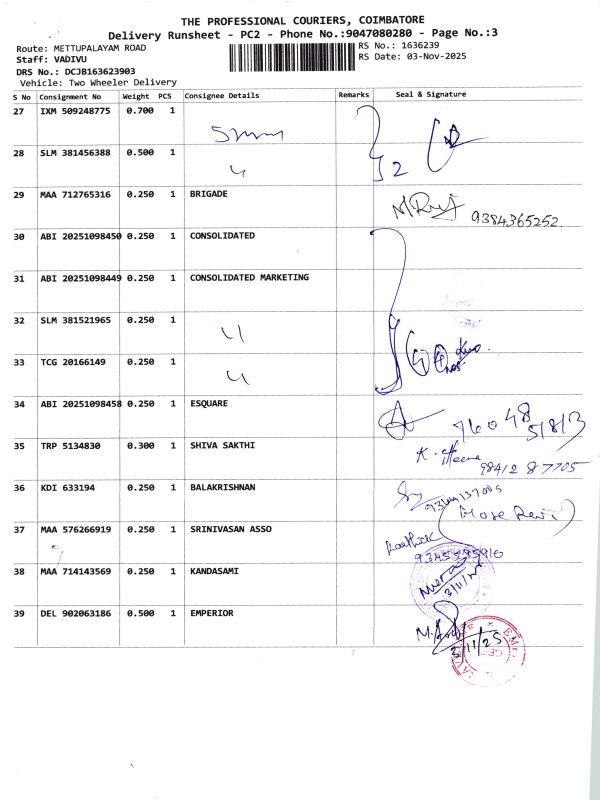 THE PROFESSIONAL COURIERS, COIMBATORE
Delivery Runsheet - PC2 - Phone No.:9047080280 - Page No.:3
Route: METTUPALAYAM ROAD
RS No.: 1636239
Staff: VADIVU
RS Date: 03-Nov-2025
DRS No.: DCJB163623903
Vehicle: Two Wheeler Delivery
S No Consignment No Weight PCS Consignee Details Remarks Seal & Signature
27 IXM 509248775 0.700 1
28 SLM 381456388 0.500 1
2
29 MAA 712765316 0.250 1 BRIGADE
9384365252
30 ABI 20251098450 0.250 1 CONSOLIDATED
31 ABI 20251098449 0.250 1 CONSOLIDATED MARKETING
32 SLM 381521965 0.250 1
33 TCG 20166149 0.250 1
34 ABI 20251098458 0.250 1 ESQUARE
76048
51813
35 TRP 5134830 0.300 1 SHIVA SAKTHI
K. Meena
98412 87705
36 KDI 633194 0.250 1 BALAKRISHNAN
37 MAA 576266919 0.250 1 SRINIVASAN ASSO
Karthick
9345595910
38 MAA 714143569 0.250 1 KANDASAMI
3/11/25
39 DEL 902063186 0.500 1 EMPERIOR
3/11/25